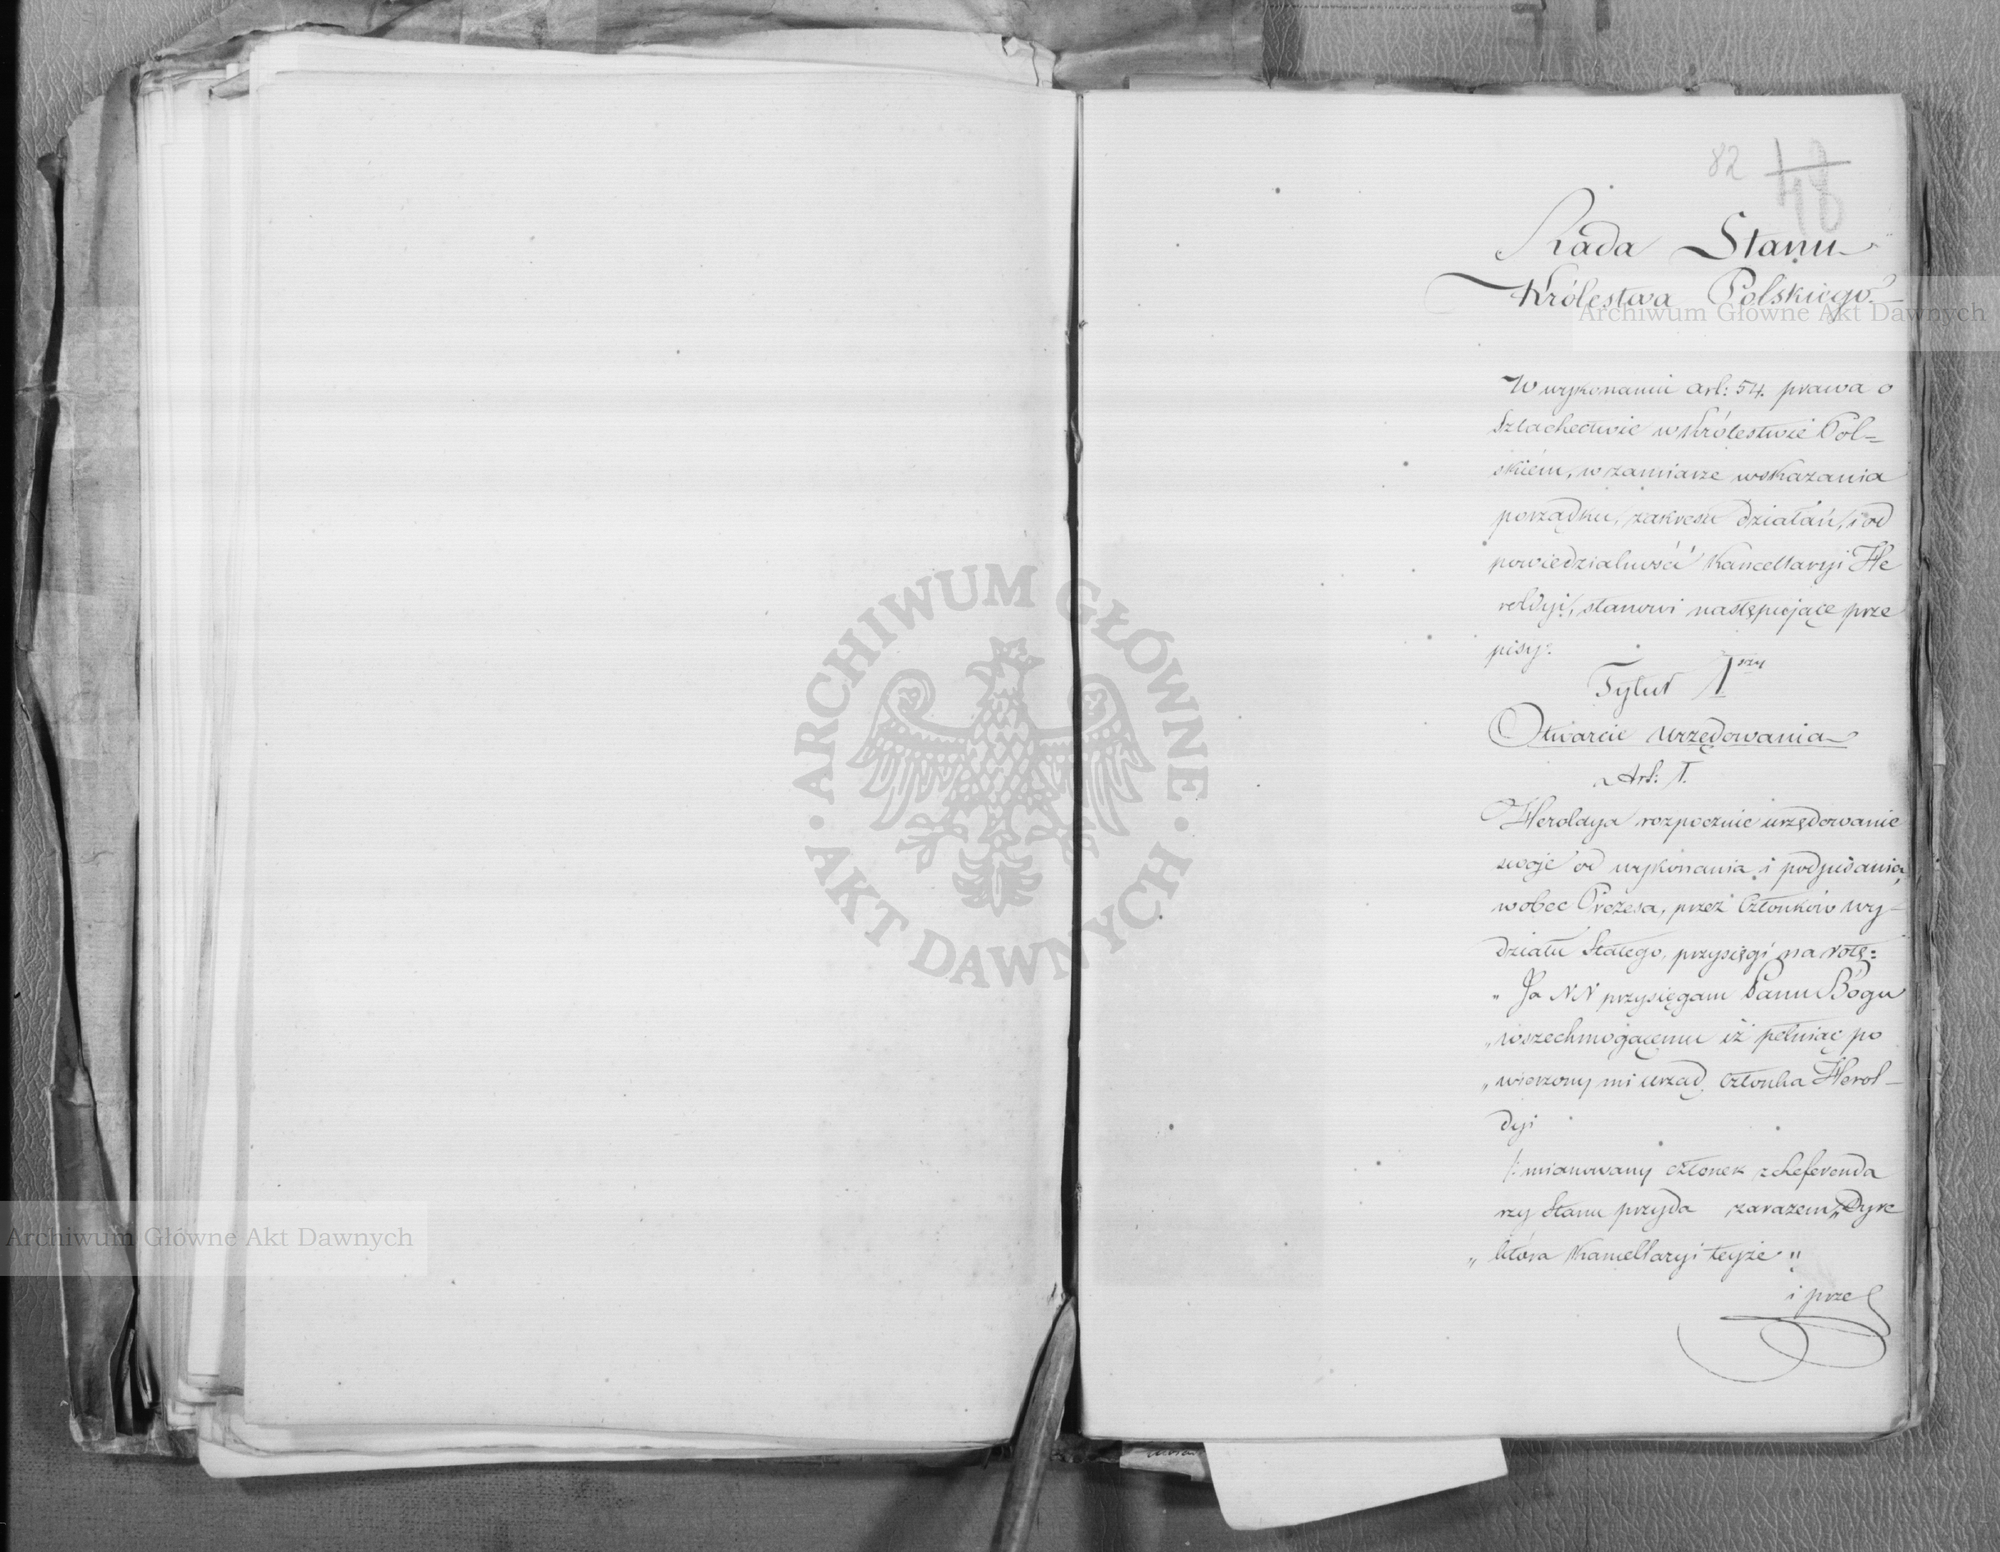 82 48
Rada Stanu
Królestwa Polskiego
W wykonaniu art: 54. prawa o
Szlachectwie w Królestwie Pol=
skiém, w zamiarze wskazania
porządku, zakresu działań, i od
powiedzialności Kancellaryi He
roldyi, stanowi następujące prze
pisy:
Tytuł Iszy
Otwarcie urzędowania
Art: 1.
Heroldya rozpocznie urzędowanie
swoje od wykonania i podpisania,
wobec Prezesa, przez Członków Wy-
działu Stałego, przysięgi na rotę:
"Ja NN przysięgam Panu Bogu
"wszechmogącemu iż pełniąc po
"wierzony mi urząd, Członka Herol-
dyi
/: mianowany członek z Referenda
rzy Stanu przyda zarazem "Dyre
"ktora Kancellaryi teyże"
i prze
Archiwum Główne Akt Dawnych
Archiwum Główne Akt Dawnych
ARCHIWUM GŁÓWNE · AKT DAWNYCH ·